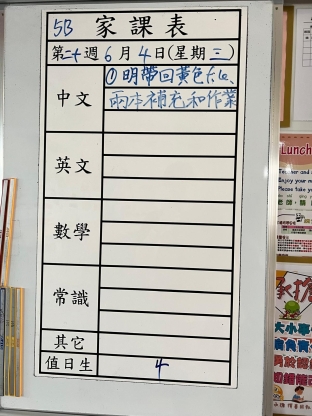 5B 家課表
第二十週6月4日(星期三)
中文
①明帶回黃色
兩本補充和作業
英文
數學
常識
其它
值日生 4
Lunch
Enjoy your m
Please take
大小事